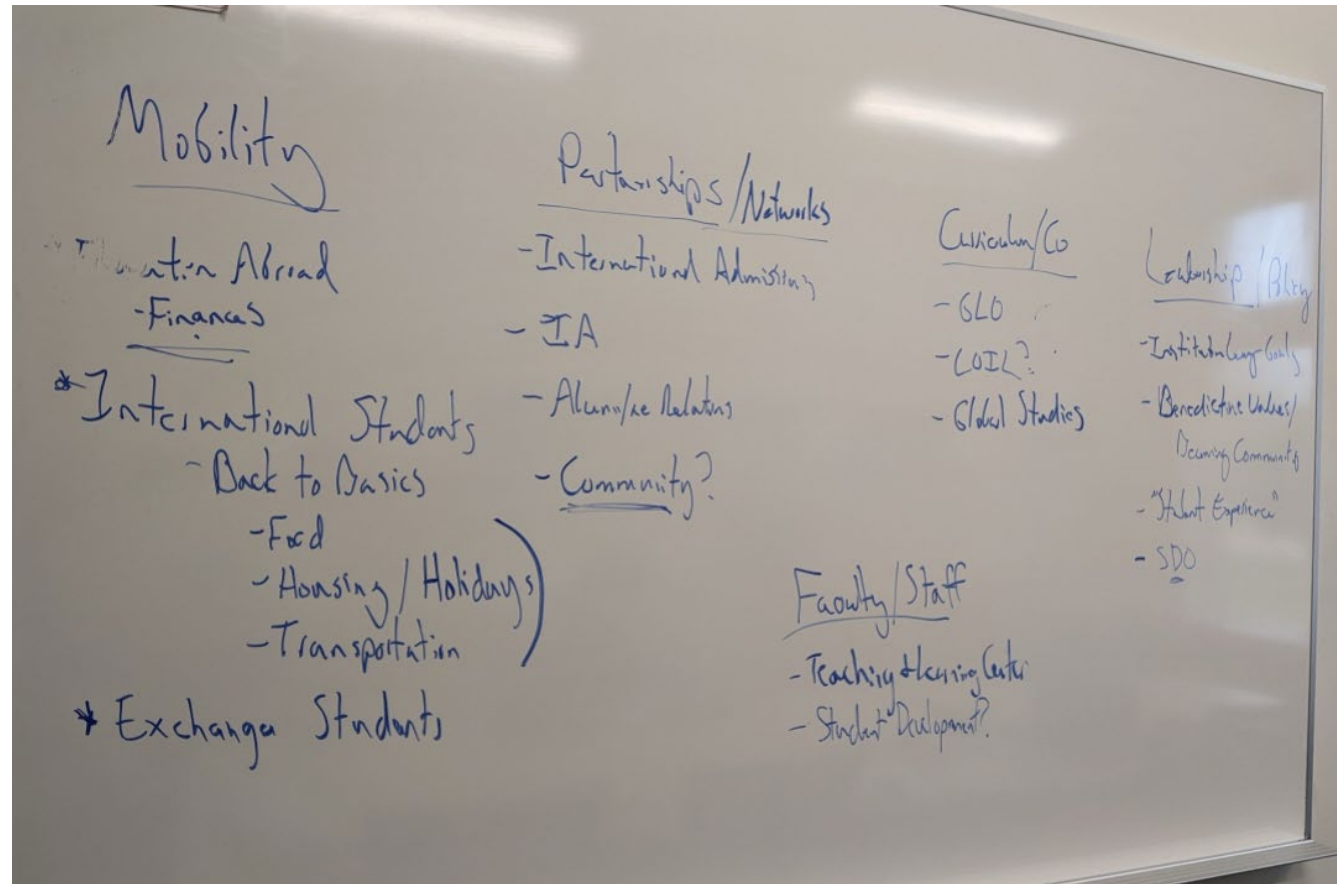 Mobility
Abroad
- Finances
* International Students
- Back to Basics
- Food
- Housing / Holidays
- Transportation
* Exchange Students
Partnerships / Networks
- International Admissions
- IA
- Alum/ae Relations
- Community?
Curriculum/Co
- GLO
- COIL?
- Global Studies
Faculty / Staff
- Teaching & Learning Center
- Student Development?
Leadership / Policy
- Goals
- Benedictine Values/
Community
- "Student Experience"
- SDO